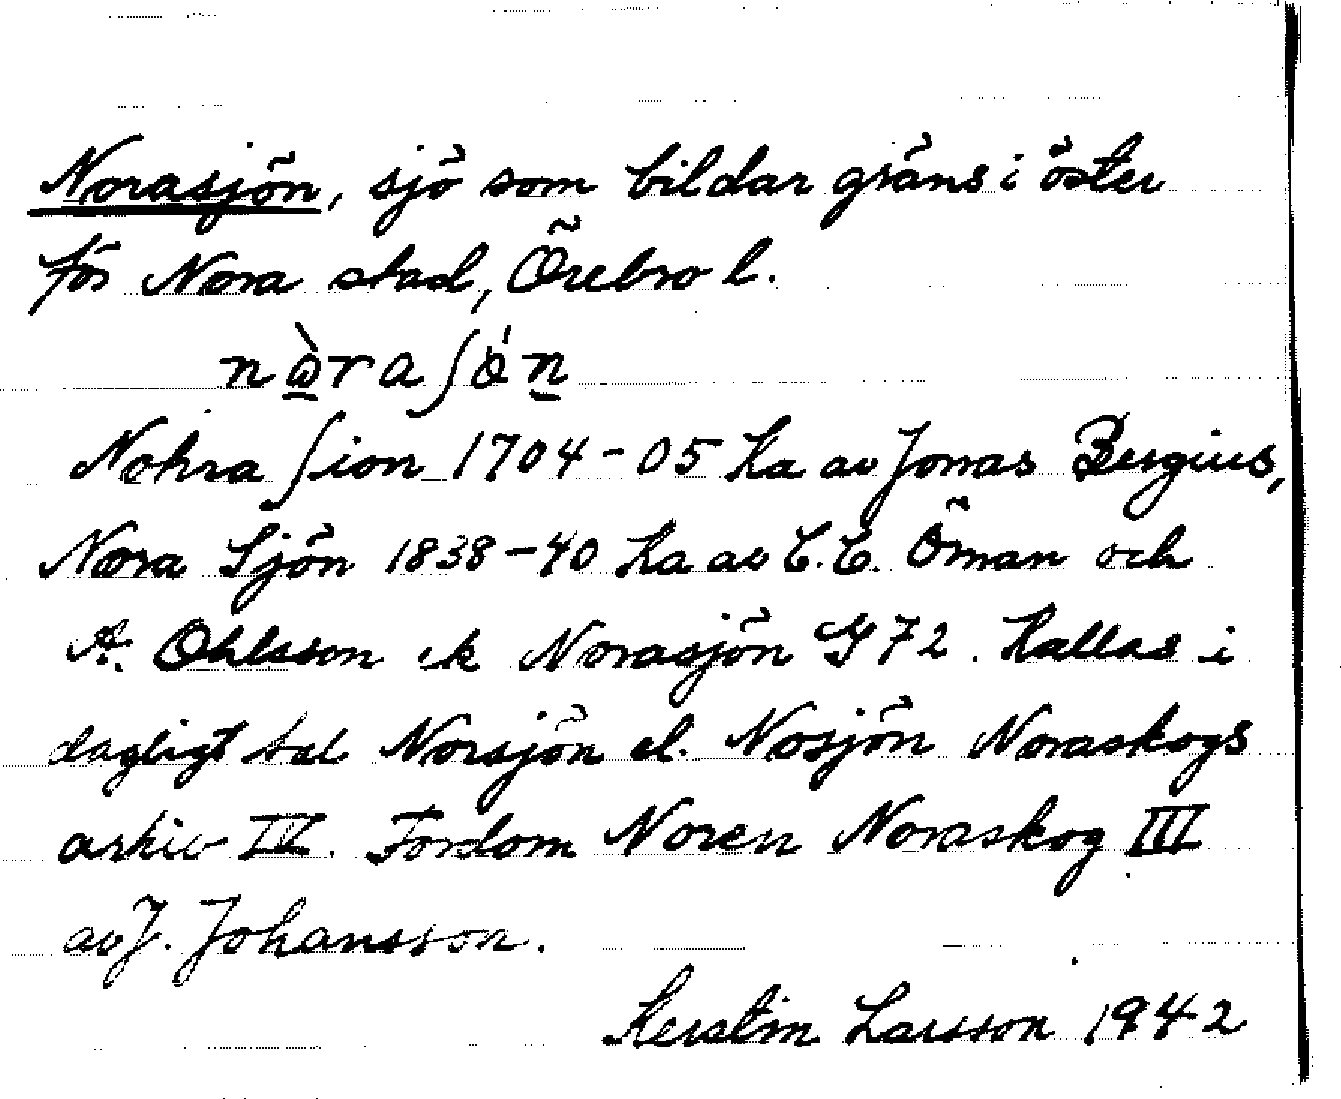 Norasjön, sjö som bildar gräns i öster
för Nora stad, Örebro l.
nὼ̱raʃǿṉ
Nohra ſion 1704-05 Ka av Jonas Bergius,
Nora Sjön 1838-40 Ka av C.E. Öman och
A. Ohlsson ek Norasjön G 72. Kallas i
dagligt tal Norsjön el. Nosjön Noraskogs
arkiv IV. Fordom Noren Noraskog III
av J. Johansson.
Kerstin Larsson 1942